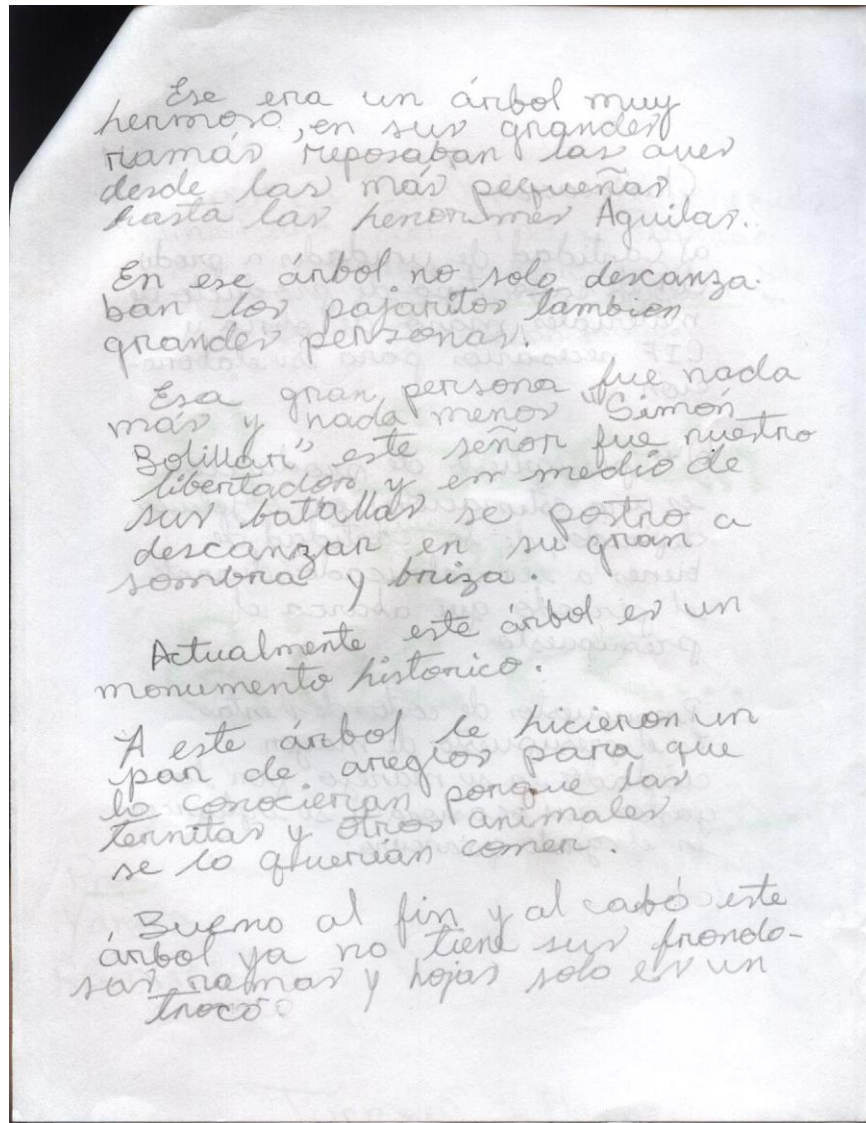 Ese era un árbol muy
hermoso, en sus grandes
ramás reposaban las aves
desde las más pequeñas
hasta las henormes Aguilas.
En ese árbol no solo descanza-
ban los pajaritos tambien
grandes personas.
Esa gran persona fue nada
más y nada menos "Simón
Bolillar" este señor fue nuestro
libertador y en medio de
sus batallas se postro a
descanzar en su gran
sombra y briza.
Actualmente este árbol es un
monumento historico.
A este árbol le hicieron un
par de areglos para que
lo conocieran porque las
termitas y otros animales
se lo querían comer.
Bueno al fin y al cabó este
árbol ya no tiene sus frondo-
sas ramas y hojas solo es un
troco.